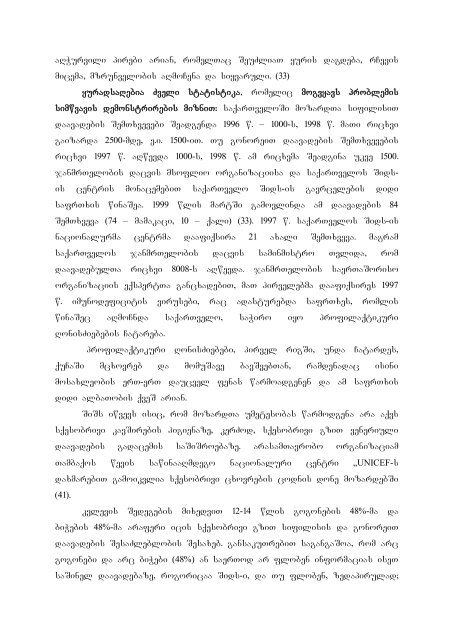 აღჭურვილი პირები არიან, რომელთაც შეუძლიათ ყურის დაგდება, რჩევის
მიცემა, მზრუნველობის აღმოჩენა და სიყვარული. (33)
ყურადსაღებია ძველი სტატისტიკა, რომელიც მოგვყავს პრობლემის
სიმწვავის დემონსტრირების მიზნით: საქართველოში მოზარდთა სიფილისით
დაავადების შემთხვევები შეადგენდა 1996 წ. – 1000-ს, 1998 წ. მათი რიცხვი
გაიზარდა 2500-მდე, ე.ი. 1500-ით. თუ გონორეით დაავადების შემთხვევების
რიცხვი 1997 წ. აღწევდა 1000-ს, 1998 წ. ამ რიცხვმა შეადგინა უკვე 1500.
ჯანმრთელობის დაცვის მსოფლიო ორგანიზაციისა და საქართველოს შიდს-
ის ცენტრის მონაცემებით საქართველო შიდს-ის გავრცელების დიდი
საფრთხის წინაშეა. 1999 წლის მარტში გამოვლინდა ამ დაავადების 84
შემთხვევა (74 – მამაკაცი, 10 – ქალი) (33). 1997 წ. საქართველოს შიდს-ის
ნაციონალურმა ცენტრმა დააფიქსირა 21 ახალი შემთხვევა. მაგრამ
საქართველოს ჯანმრთელობის დაცვის სამინმისტრო თვლიდა, რომ
დაავადებულთა რიცხვი 8008-ს აღწევდა. ჯანმრთელობის საერთაშორისო
ორგანიზაციის ექსპერტთა განცხადებით, მათ პირველებმა დააფიქსირეს 1997
წ. იმუნოდეფიციტის ვირუსები, რაც ადასტურებდა საფრთხეს, რომლის
წინაშეც აღმოჩნდა საქართველო, საჭირო იყო პროფილაქტიკური
ღონისძიებების ჩატარება.
პროფილაქტიკური ღონისძიებები, პირველ რიგში, უნდა ჩატარდეს,
ქუჩაში მცხოვრებ და მომუშავე ბავშვებთან, რამდენადაც ისინი
მოსახლეობის ერთ-ერთ დაუცველ ფენას წარმოადგენენ და ამ საფრთხის
დიდი ალბათობის ქვეშ არიან.
შიშს იწვევს ისიც, რომ მოზარდთა უმეტესობას წარმოდგენა არა აქვს
სქესობრივი კავშირების ჰიგიენაზე, კერძოდ, სქესობრივი გზით ვენერიული
დაავადების გადაცემის საშიშროებაზე. არასამთავრობო ორგანიზაციამ
თამბაქოს წევის საწინააღმდეგო ნაციონალური ცენტრი „UNICEF-ს
დახმარებით გამოიკვლია სქესობრივი ცხოვრების ცოდნის დონე მოზარდებში
(41).
კვლევის შედეგების მიხედვით 12-14 წლის გოგონების 48%-მა და
ბიჭების 48%-მა არაფერი იცის სქესობრივი გზით სიფილისის და გონორეით
დაავადების შესაძლებლობის შესახებ. განსაკუთრებით საგანგაშოა, რომ არც
გოგონები და არც ბიჭები (48%) ან საერთოდ არ ფლობენ ინფორმაციას ისეთ
საშინელ დაავადებაზე, როგორიცაა შიდს-ი, და თუ ფლობენ, ზედაპირულად;